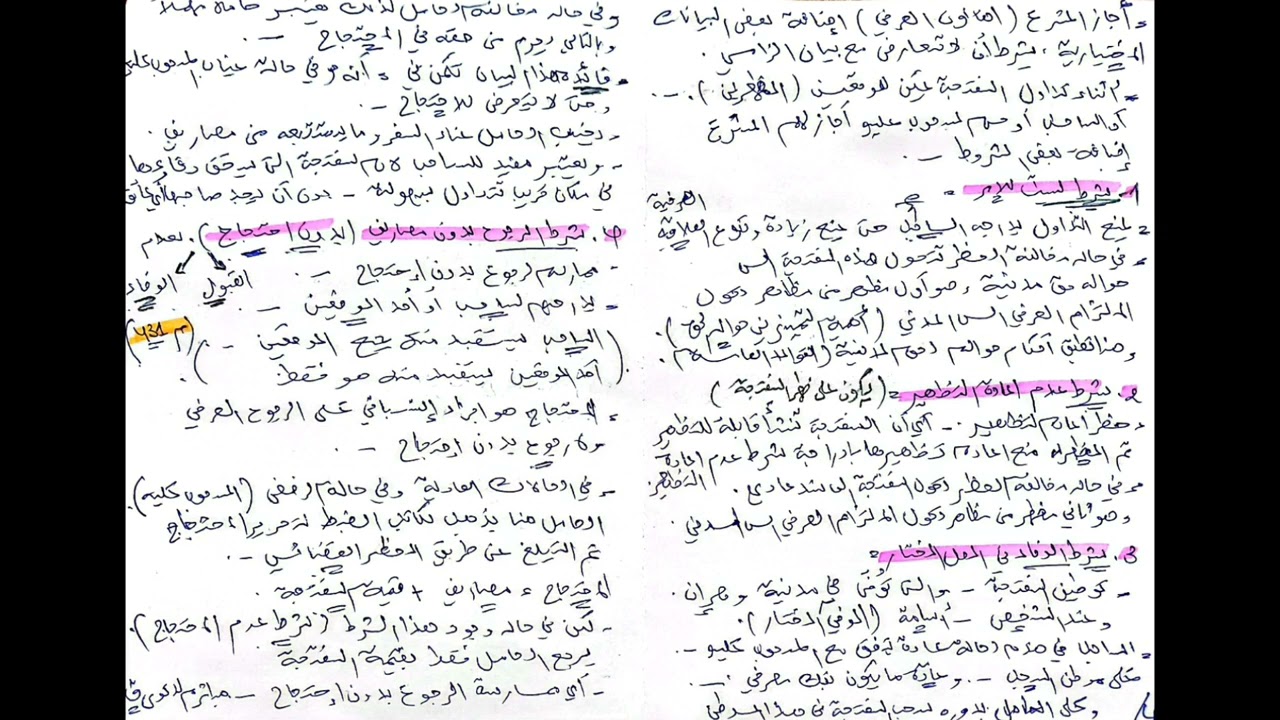 وأجاز المشرع (القانون الصرفي) إضافة بعض البيانات
الاختيارية، بشرط أن لا تتعارض مع بيان الزامي.
= أثناء تداول السفتجة يمكن للموقعين (المظهرين).
أو الساحب أو حتى المسحوب عليه أجاز لهم المشرع
إضافة بعض الشروط -.
1- شرط ليست لأمر =
= لمنع التداول لا وجه السفتجة حتى يمنع زيادة وقوع العلاقة الصرفية
= في حالة مخالفة الحظر تتحول هذه السفتجة إلى
حوالة حق مدنية، وهو أول مظهر من مظاهر تحول
الالتزام الصرفي إلى المدني (أهمية التمييز بين حوالة حق).
وهنا تطبق أحكام حوالة الحق المدنية (القواعد العامة).
2- شرط عدم إعادة التظهير = (يكون على ظهر السفتجة)
= حظر إعادة التظهير - أي أن السفتجة تنشأ قابلة للتظهير
ثم المظهر له منع إعادة تظهيرها بإدراجه شرط عدم إعادة التظهير.
= في حالة مخالفة الحظر تحول السفتجة إلى سند عادي.
وهو ثاني مظهر من مظاهر تحول الالتزام الصرفي إلى المدني.
3- شرط الوفاء في المحل المختار =
- توطين السفتجة - والتي توفى في مدينة وهران
وعند الشخص - أسامة (الموفي المختار).
= الساحب في هذه الحالة عادة يتفق مع المسحوب عليه -.
على موطن السحب -. وعادة ما يكون بنك مصرفي -.
وعلى الحامل بدوره لسحب السفتجة في هذا الموطن
وفي حالة مخالفة الحامل لذلك يعتبر حامل مهملا
وبالتالي يحرم من حقه في الاحتجاج -.
- فائدة هذا البيان تكمن في = أنه وفي حالة غياب المسحوب عليه
وحتى لا يتعرض للاحتجاج -.
- ويجنب الحامل عناء السفر وما يستتبعه من مصاريف.
- ويعتبر مفيد للساحب لأن السفتجة التي يستحق دفعها
في مكان قريب تتداول بسهولة - بدون أن يجد صاحبها أي عائق
4. شرط الرجوع بدون مصاريف (بدون احتجاج). لعدم
القبول الوفاء
- ممارسة الرجوع بدون احتجاج -.
= لا وضعه الساحب أو أحد الموقعين -.
(الساحب يستفيد منه جميع الموقعين -.
أحد الموقعين يستفيد منه هو فقط).
(م 431)
= الاحتجاج هو إجراء إلتماسي على الرجوع الصرفي
ولا رجوع بدون احتجاج -.
= في الحالات العادية وفي حالة الرفض (المسحوب عليه).
الحامل هنا يذهب لكاتب الضبط لتحرير الاحتجاج
ثم التبليغ عن طريق المحضر القضائي -.
الاحتجاج = مصاريف + قيمة السفتجة
- لكن في حالة وجود هذا الشرط (شرط عدم الاحتجاج).
يرجع الحامل فقط بقيمة السفتجة
- أي ممارسة الرجوع بدون احتجاج -